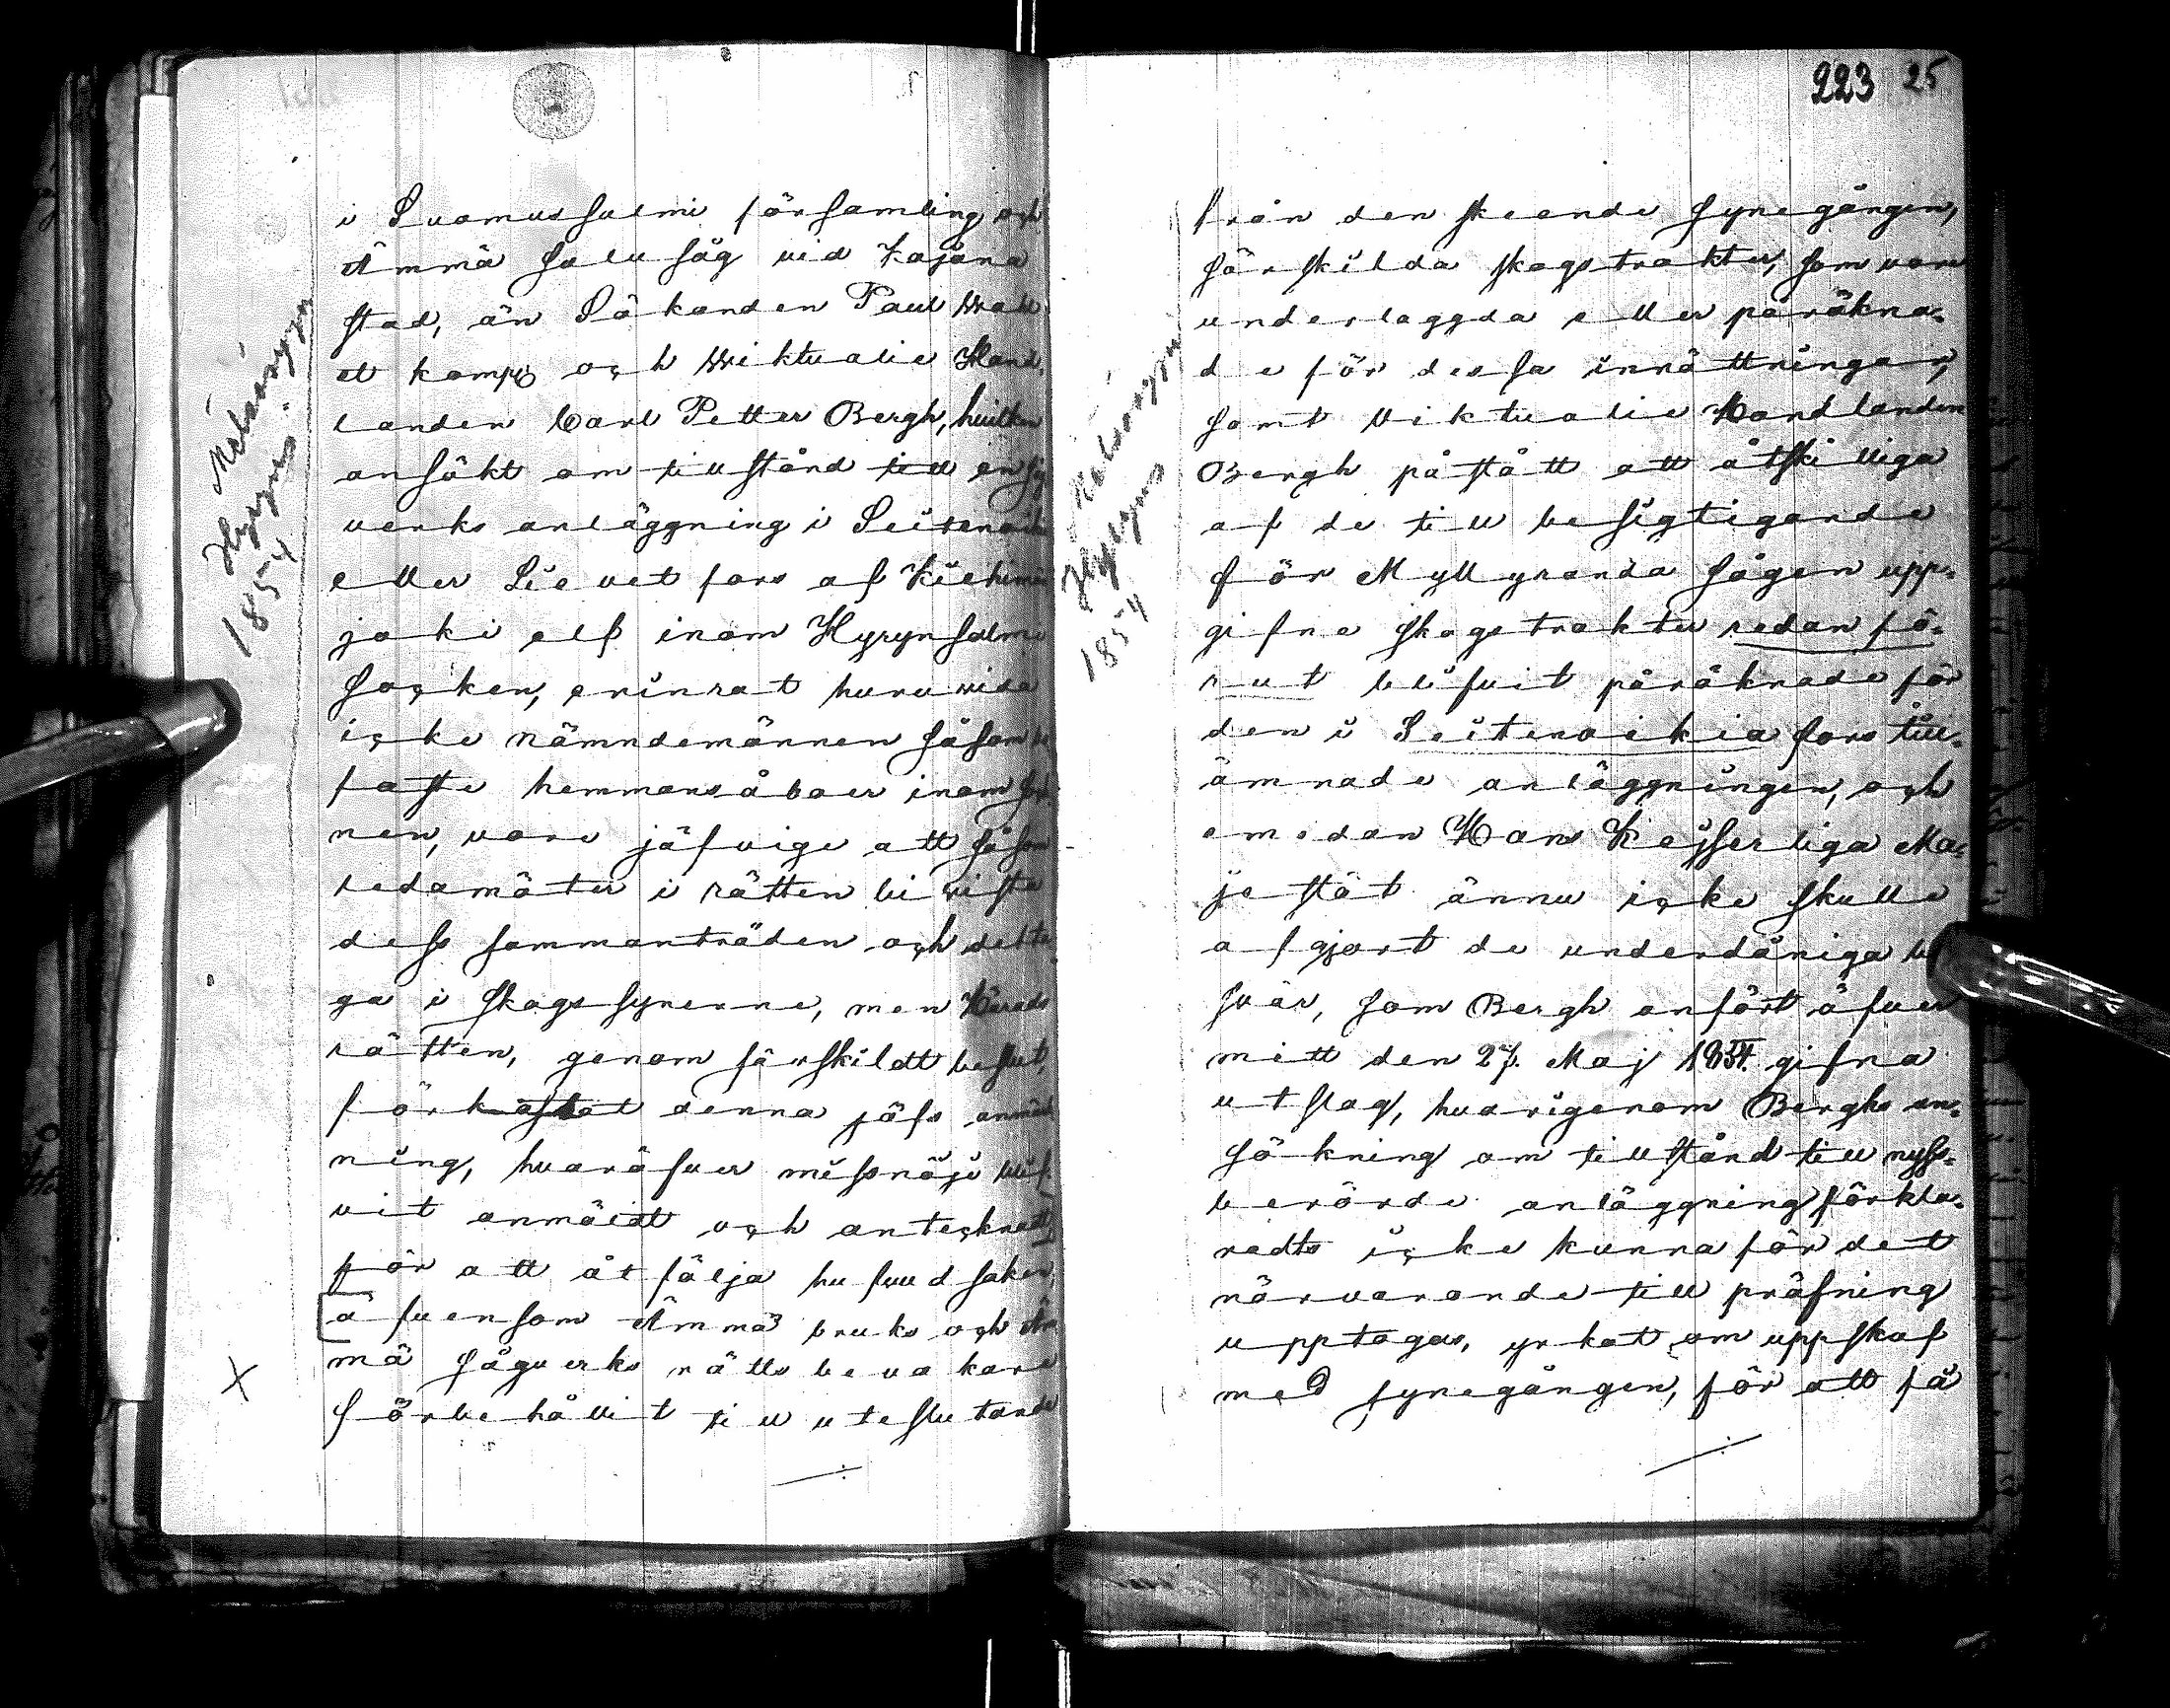 i Suomussalmi församling och
Ämmä salu såg vid Kajana
stad, än Sökanden Paul Wah
et komp och Wiktualie Hand¸
landen Carl Petter Bergh, hvilken
ansökt om tillstånd till en såg
verks anläggning i Seitenoik
eller Sievet fors af Kiehimä
joki elf inom Hyrynsalmi
Socken, erinrat huruvida
icke nämndemännen såsom be
faste hemmansåboer inom
nen, vore jäfvige att såsom
ledamöter i rätten bivista
dess sammanträden och delta
ga i skogssynerne, men Härads
rätten, genom särskildt beslut,
förkastat denna jäfs anmäl
ning, hvaröfver missnöje blif
vit anmäldt och antecknadt
för att åtfölja hufvudsaken,
äfvensom Ämmä bruks och Äm
mä sågverks rätts bevakare
förbehållit till uteslutande
Hyryns
1854
223 25
från den skeende synegången,
särskilda skogstrakter, som vore
underlaggda eller påräkna¸
de för dessa inrättningar,
samt Viktualie Handlanden
Bergh påstått att åtskilliga
af de till besigtigande
för Myllyranda sågen upp¸
gifne skogstrakter redan fö¸
rut blifvit påräknade för
den i Seitenoikia fors till¸
ämnade anläggningen, och
emedan Hans Kejserliga Ma¸
jestät ännu icke skulle
afgjort de underdåniga be
svär, som Bergh anfört öfver
mitt den 27. Maj 1854. gifna
utslag, hvarigenom Berghs an¸
sökning om tillstånd till nyss¸
berörde anläggning förkla¸
radts icke kunna för det
närvarande till pröfning
upptagas, yrkat om uppskof
med synegången, för att få
Hyryns
1854